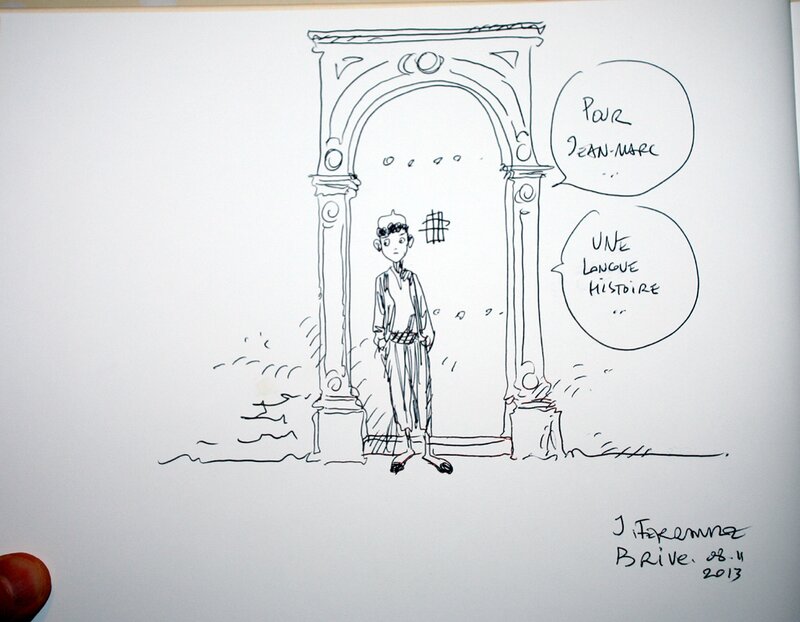 POUR
JEAN-MARC
...
UNE
LONGUE
HISTOIRE
..
J.
BRIVE. 08.11
2013